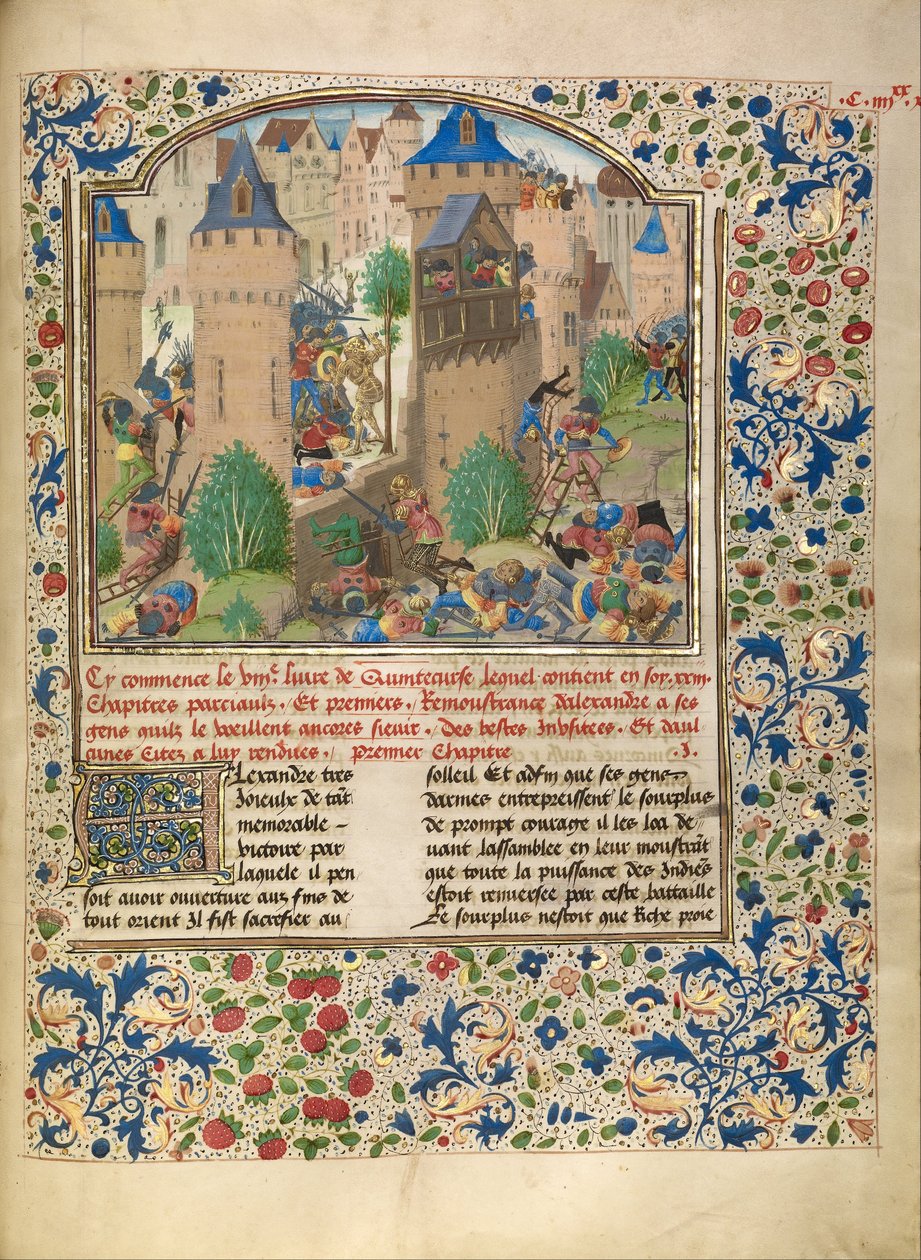 .C. iiij xx x
Cy commence le viije. livre de Quintecurse lequel contient en soy .xxiij.
Chapitres parciaulx. Et premiers. Remoustrance dalexandre a ses
gens quilz le vueillent ancores sievir. Des bestes Invsitees. Et daul
cunes Citez a luy rendues. premier Chapitre .I.
Alexandre tres
Joieulx de tāt
memorable –
victoire par
laquele il pen
soit avoir ouverture aux fins de
tout orient Il fist sacrefier au
solleil Et adfin que ses gens
darmes entrepreissent le sourplus
de prompt courage il les loa de
uant lassamblee en leur moustrāt
que toute la puissance des Indiēs
estoit renuersee par ceste battaille
Le sourplus nestoit que Riche proie